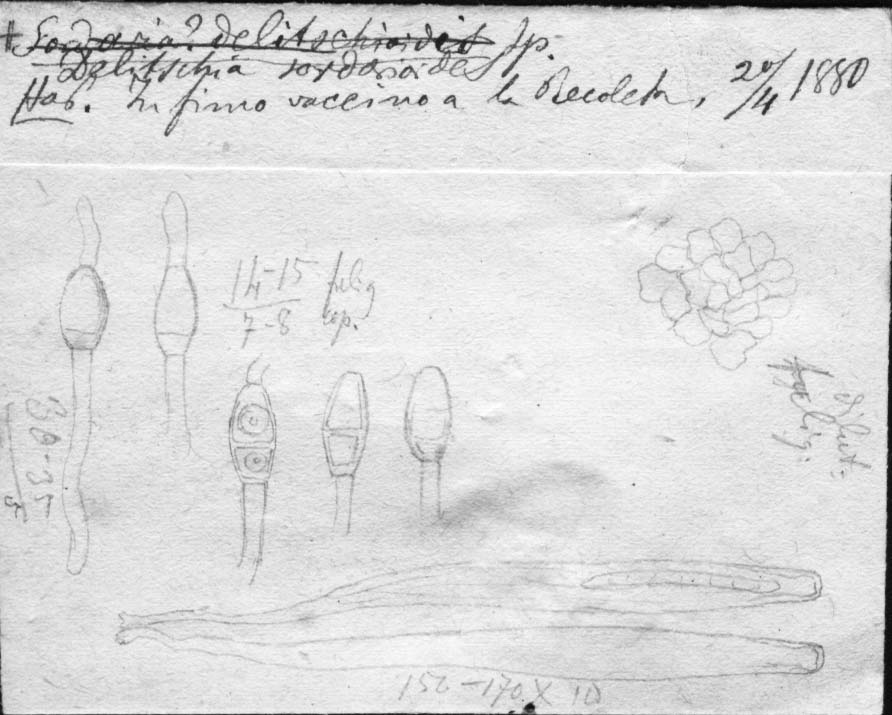 Sordaria? delitschioides Sp.
Delitschia sordarioides
Hab. In fimo vaccino a la Recoleta, 20/4 1880
14-15
7-8
30-35
5
dilut:
fulig:
150-170 X 10